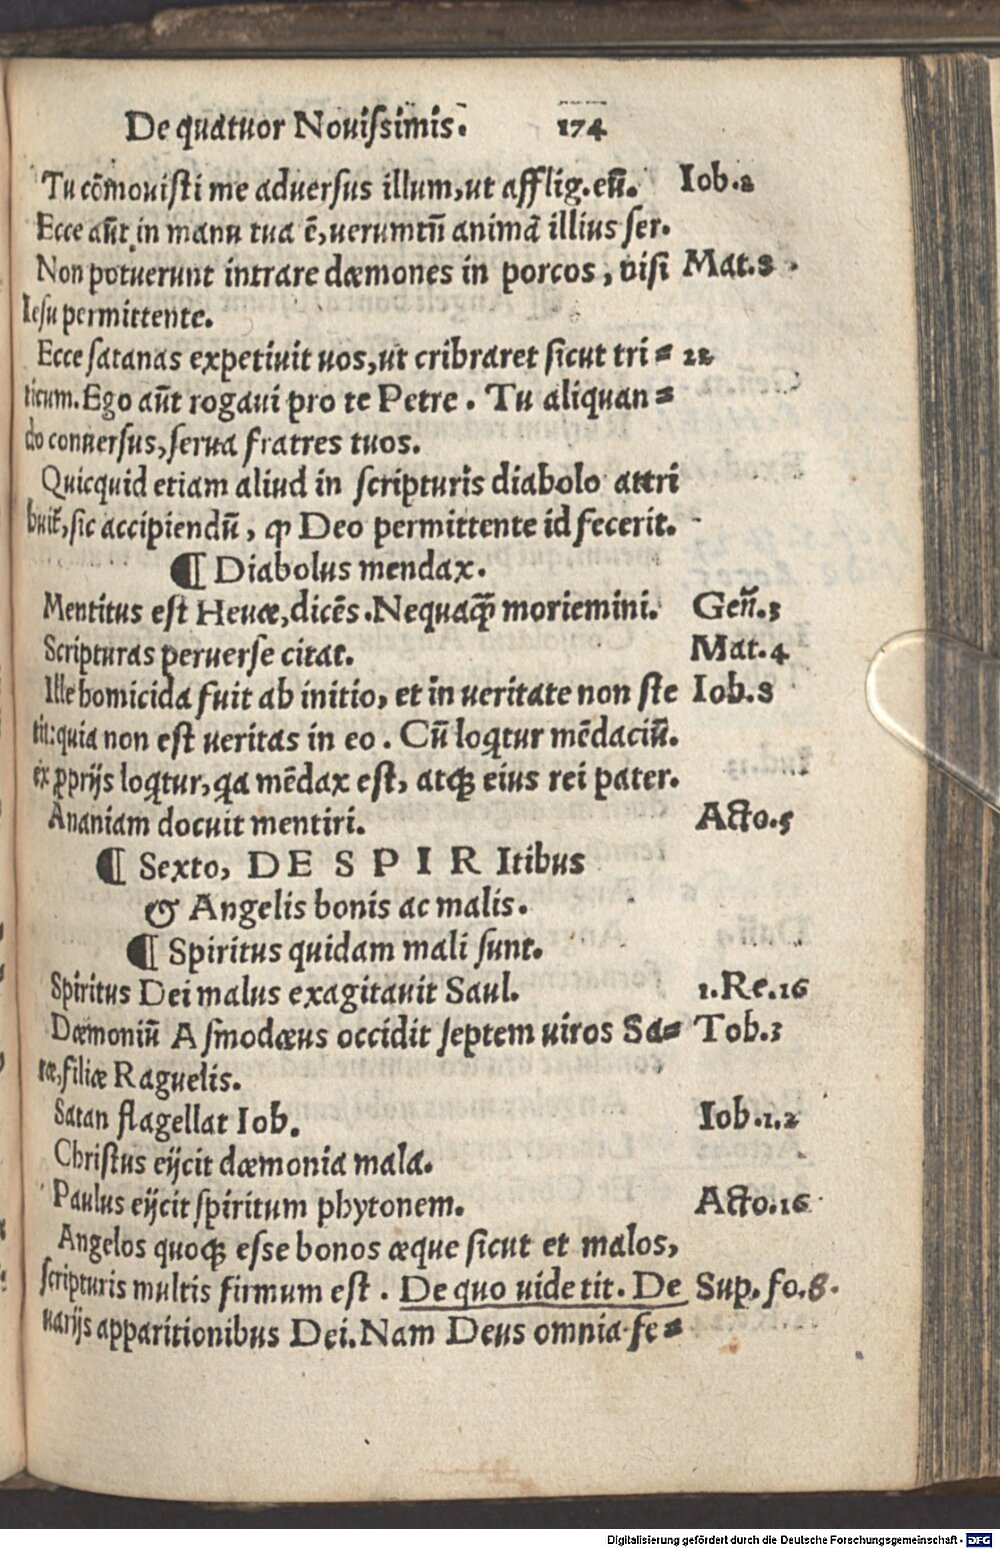 De quatuor Nouissimis. 174
Tu cõmouisti me aduersus illum, ut afflig. eũ. Iob.2
Ecce aũt in manu tua ẽ, uerumtñ animã illius ser.
Non potuerunt intrare dæmones in porcos, nisi Mat.8
Iesu permittente.
Ecce satanas expetiuit uos, ut cribraret sicut tri= 22
ticum. Ego aũt rogaui pro te Petre. Tu aliquan=
do conuersus, serua fratres tuos.
Quicquid etiam aliud in scripturis diabolo attri
buit̃, sic accipiendũ, ꝙ Deo permittente id fecerit.
¶ Diabolus mendax.
Mentitus est Heuæ, dicẽs. Nequaq̃ moriemini. Geñ.3
Scripturas peruerse citat. Mat.4
Ille homicida fuit ab initio, et in ueritate non ste Iob.8
tit: quia non est ueritas in eo. Cũ loqtur mẽdaciũ.
ex ꝓprijs loqtur, qa mẽdax est, atqꝫ eius rei pater.
Ananiam docuit mentiri. Acto.5
¶ Sexto, DE SPIRItibus
& Angelis bonis ac malis.
¶ Spiritus quidam mali sunt.
Spiritus Dei malus exagitauit Saul. 1.Re.16
Dæmoniũ Asmodæus occidit septem uiros Sa= Tob.3
ræ, filiæ Raguelis.
Satan flagellat Iob. Iob.1.2
Christus eijcit dæmonia mala.
Paulus eijcit spiritum phytonem. Acto.16
Angelos quoqꝫ esse bonos æque sicut et malos,
scripturis multis firmum est. De quo uide tit. De Sup. fo.8.
uarijs apparitionibus Dei. Nam Deus omnia fe=
Digitalisierung gefördert durch die Deutsche Forschungsgemeinschaft - DFG